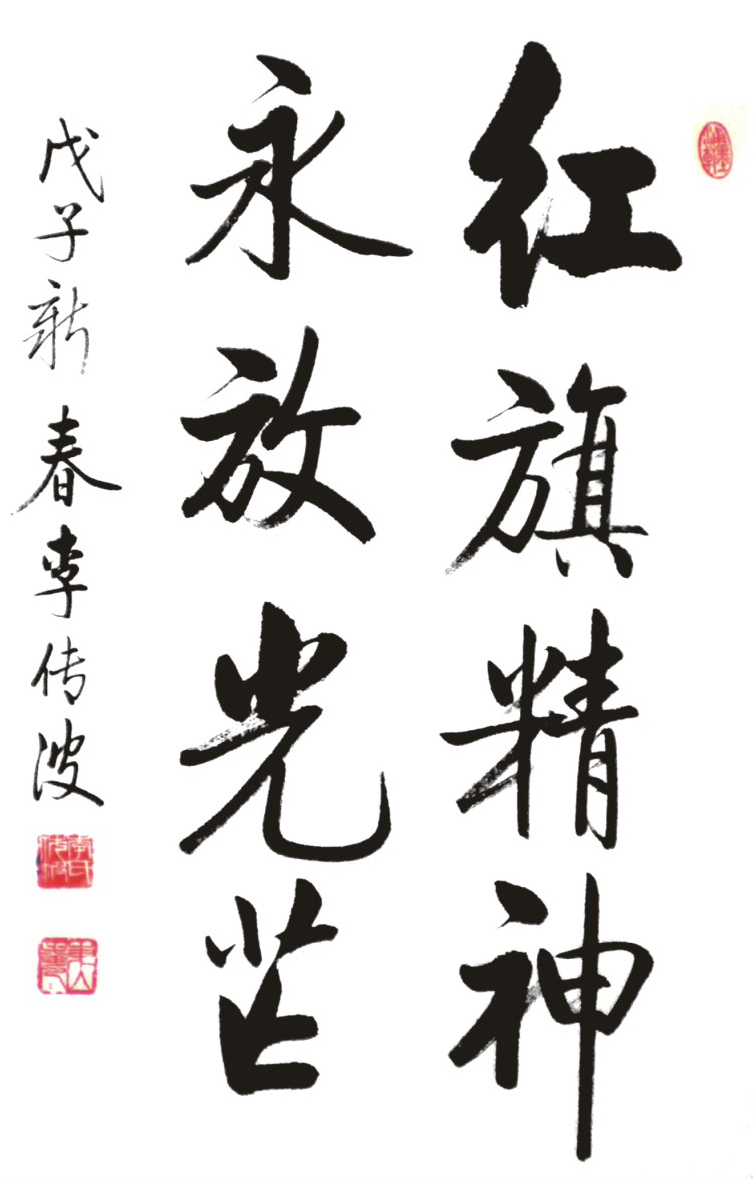 红旗精神
永放光芒
戊子新春李传波